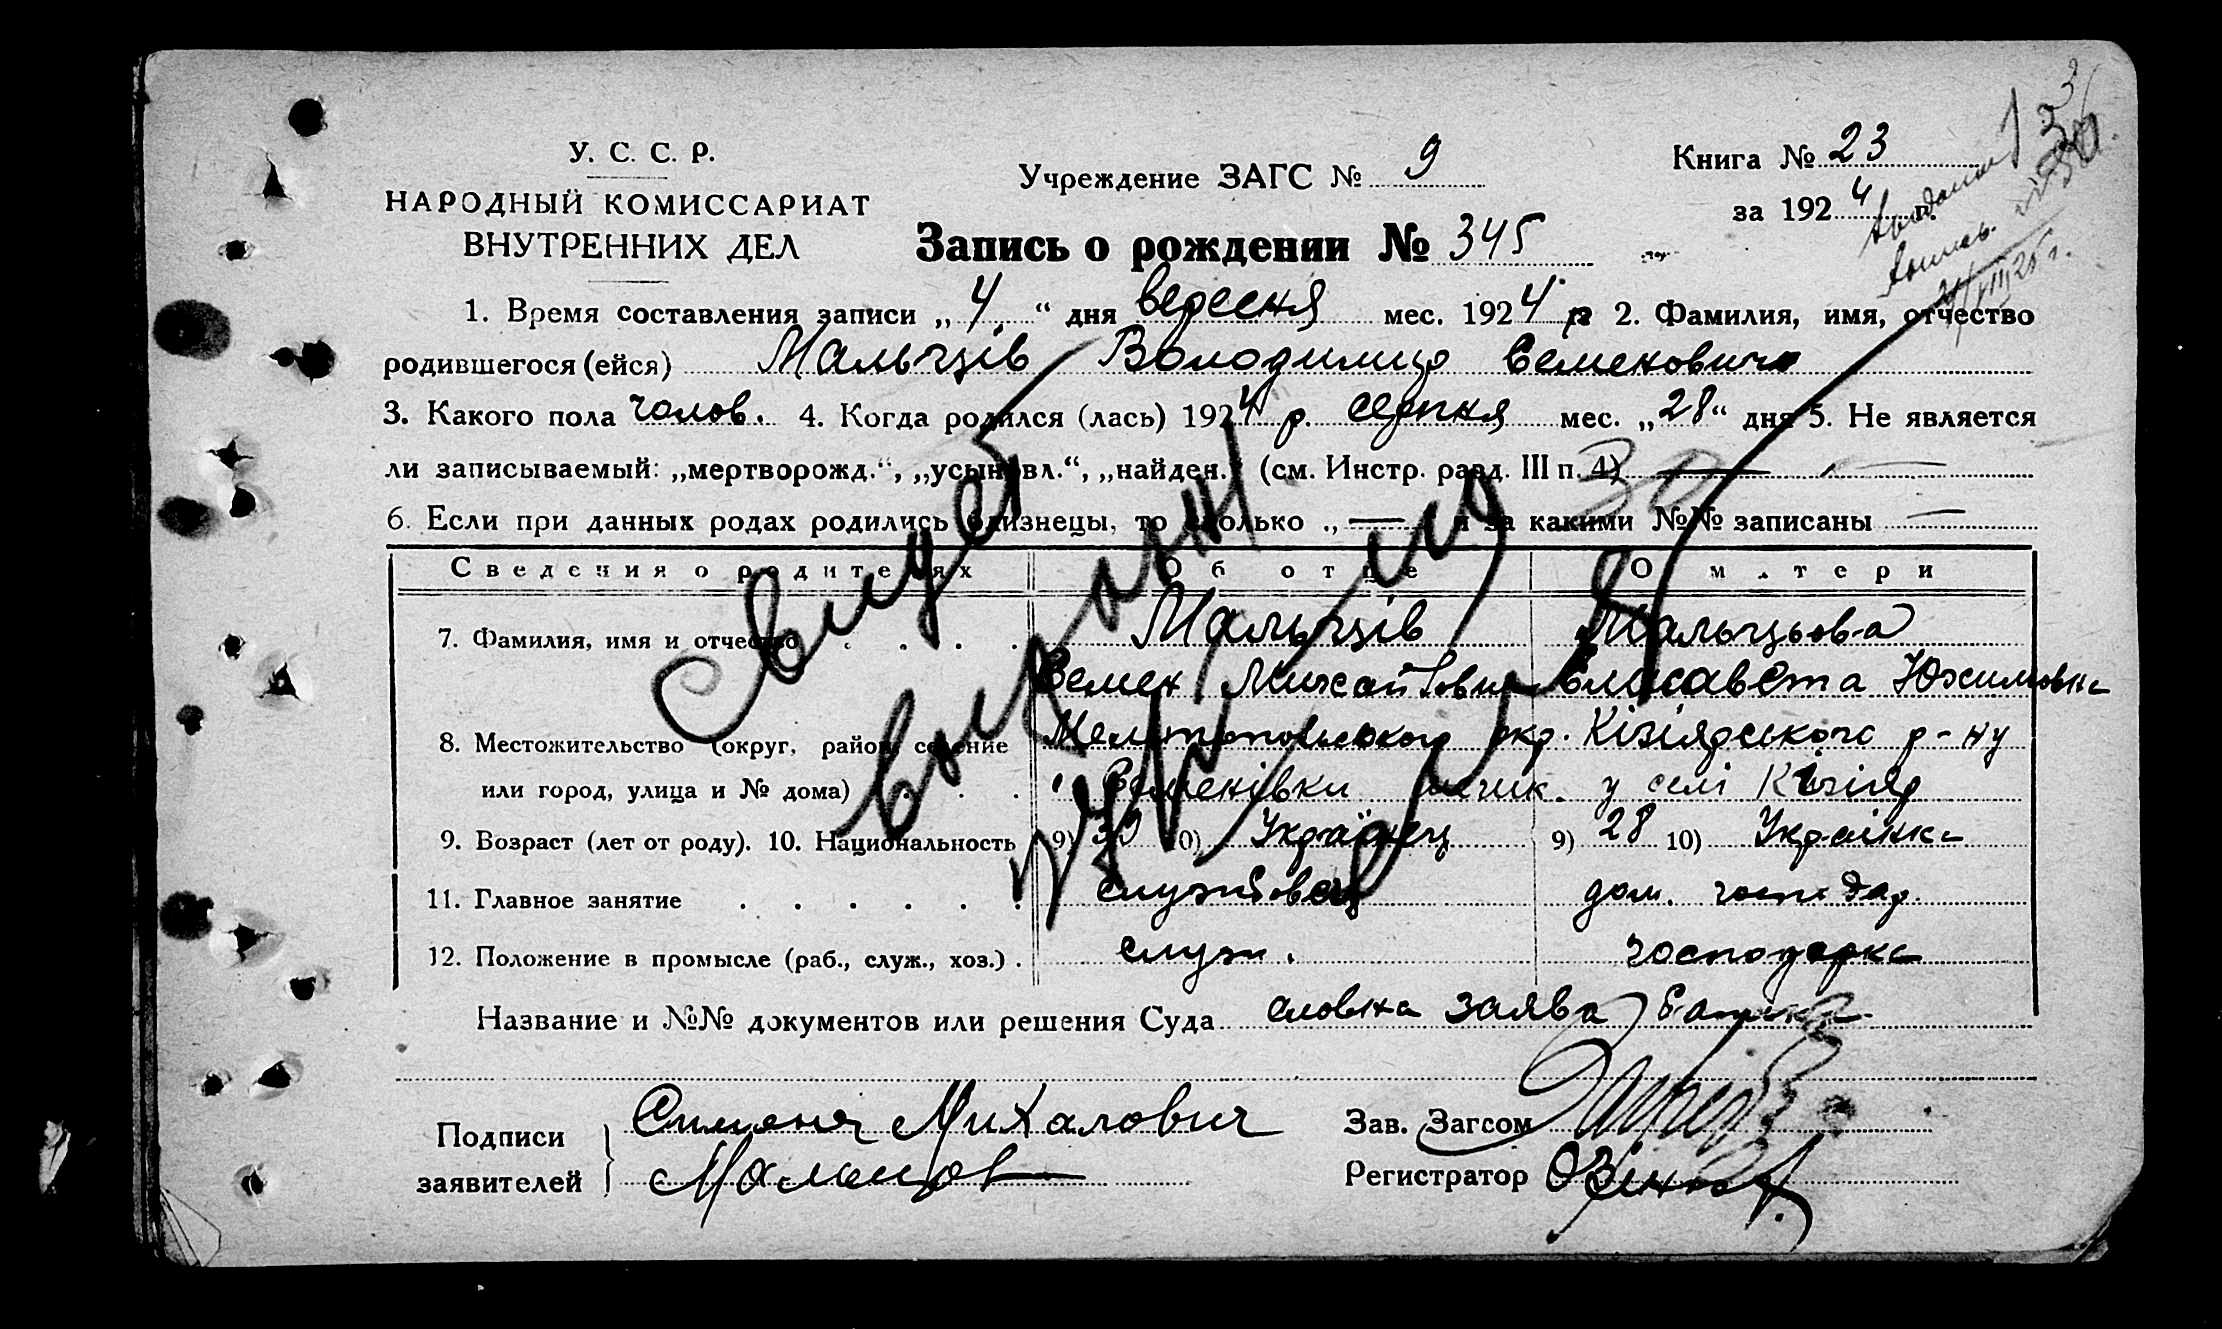 У. С. С. Р.
НАРОДНЫЙ КОМИССАРИАТ
ВНУТРЕННИХ ДЕЛ
Учреждение ЗАГС № 9
Книга № 23
за 1924 г.
Запись о рождении № 345
1. Время составления записи „4“ дня вересня мес. 1924 р 2. Фамилия, имя, отчество
родившегося (ейся) Мальчців Володимир Семенович
3. Какого пола чолов. 4. Когда родился (лась) 1924 р. серпня мес. „28“ дня 5. Не является
ли записываемый: „мертворожд.“, „усыновл.“, „найден.“ (см. Инстр. разд. III п. 4) —
6. Если при данных родах родились близнецы, то сколько „— и за какими №№ записаны —
Сведения о родителях Об отце О матери
7. Фамилия, имя и отчество Мальчців Мальчцьова
Семен Михайлович Елисавета Юхимовна
8. Местожительство (округ, район, селение Мелітопольского окр. Кізіярського р-ну
или город, улица и № дома) у селі Кізіяр
9. Возраст (лет от роду). 10. Национальность 9) 30 10) Українець 9) 28 10) Українка
11. Главное занятие службовец дом. господар.
12. Положение в промысле (раб., служ., хоз.) служ. господарка
Название и №№ документов или решения Суда словна заява батька
Подписи заявителей
Михалович
Зав. Загсом
Регистратор
Свидет
выдан